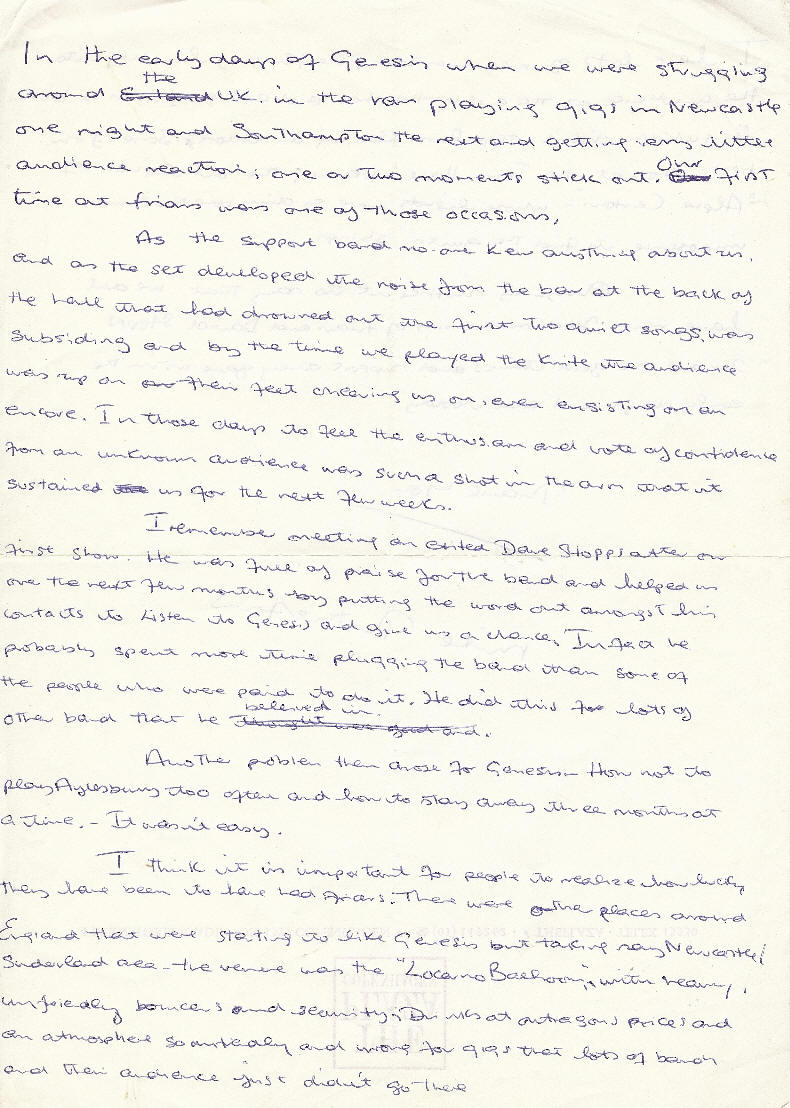 In the early days of Genesis when we were struggling
the
around England U.K. in the van playing gigs in Newcastle
one night and Southampton the next and getting very little
audience reaction; one or two moments stick out. Our first
time at friars was one of those occasions,
As the support band no-one knew anything about us,
and as the set developed the noise from the bar at the back of
the hall that had drowned out the first two quiet songs, was
subsiding and by the time we played the Knife the audience
was up on their feet cheering us on, even ensisting on an
encore. In those days to feel the enthusiasm and vote of confidence
from an unknown audience was such a shot in the arm that it
sustained us for the next few weeks.
I remember meeting an exited Dave Stopps after our
first show. He was full of praise for the band and helped us
over the next few months by putting the word out amongst his
contacts to Listen to Genesis and give us a chance, In fact he
probably spent more time plugging the band than some of
the people who were paid to do it. He did this for lots of
believed in.
other band that he thought were good and.
Another problem then arose for Genesis - How not to
play Aylesbury too often and how to stay away three months at
a time. - It wasn't easy.
I think it is important for people to realize how lucky
they have been to have had friars. There were other places around
England that were starting to like Genesis but taking say Newcastle/
Sunderland area - the venue was the "Locarno Ballroom", with heavy,
unfriendly bouncers and security, Drinks at outragous prices and
an atmosphere so unfriendly and wrong for gigs that lots of bands
and their audience just didn't go there